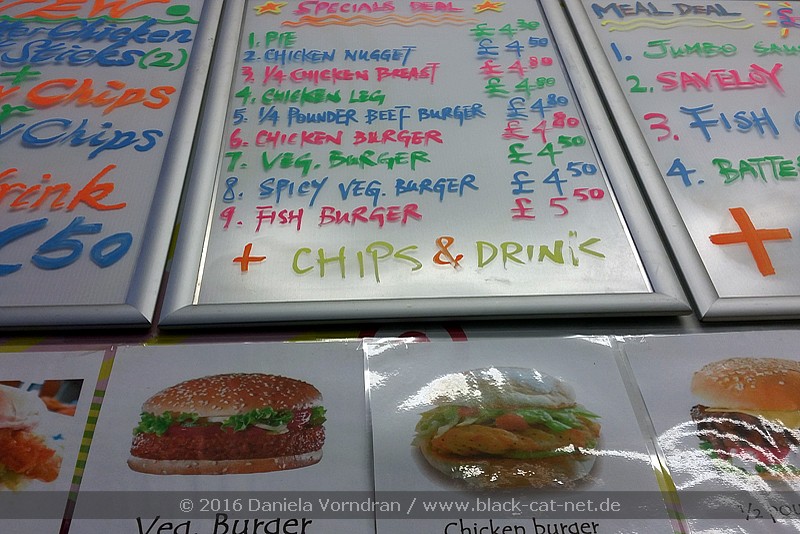 Chicken
Sticks (2)
+
Chips
Chips
Drink
50
SPECIALS DEAL
1. PIE £4 30
2. CHICKEN NUGGET £4 50
3. 1/4 CHICKEN BREAST £4 80
4. CHICKEN LEG £4 80
5. 1/4 POUNDER BEEF BURGER £4 80
6. CHICKEN BURGER £4 80
7. VEG. BURGER £4 50
8. SPICY VEG. BURGER £4 50
9. FISH BURGER £5 50
+ CHIPS & DRINK
MEAL DEAL
1. JUMBO
2. SAVELOY
3. FISH
4.
+
Veg. Burger
Chicken burger
1/2
© 2016 Daniela Vorndran / www.black-cat-net.de